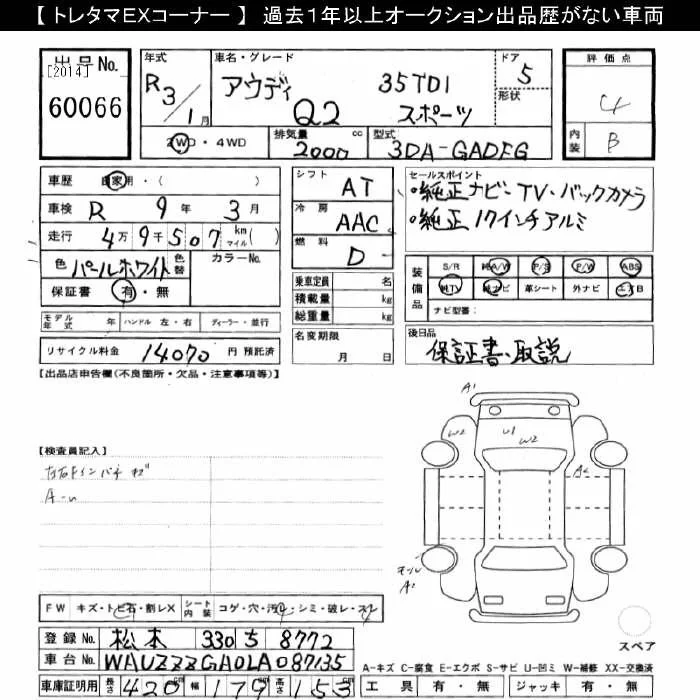 【 トレタマEXコーナー 】 過去1年以上オークション出品歴がない車両
出品No.
[2014]
60066
年式
R3/1月
車名・グレード
アウディ 35TDI
Q2 スポーツ
ドア
5
形状
評価点
4
内装
B
2WD・4WD
排気量
2000cc
型式
3DA-GADFG
車歴 自家用・( )
車検 R 9年 3月
走行 4万9千507 km マイル( )
色 パールホワイト 色替 カラーNo.
保証書 有・無
シフト AT
冷房 AAC
燃料 D-
乗車定員 名
積載量 kg
総重量 kg
セールスポイント
・純正ナビ・TV・バックカメラ
・純正17インチアルミ
装備品
S/R 純A/W P/S P/W ABS
純TV 純ナビ 革シート 外ナビ エアB
ナビ型番:
モデル年式 年 ハンドル 左・右 ディーラー・並行
名変期限
月 日
後日品
保証書、取説
リサイクル料金 14070 円 預託済
【出品店申告欄(不良箇所・欠品・注意事項等)】
【検査員記入】
左右Fインパネ キズ
A-U
A1
W2
U1
W2
A2
モール
A1
スペア
FW キズ・トビ石・割レX シート内装 コゲ・穴・汚レ・シミ・破レ・スレ
登録No. 松本 330 ち 8772
車台No. WAUZZZGA0LA087135
A-キズ C-腐食 E-エクボ S-サビ U-凹ミ W-補修 XX-交換済
車庫証明用 長さ 420cm 幅 179cm 高さ 153cm
工具 有・無 ジャッキ 有・無